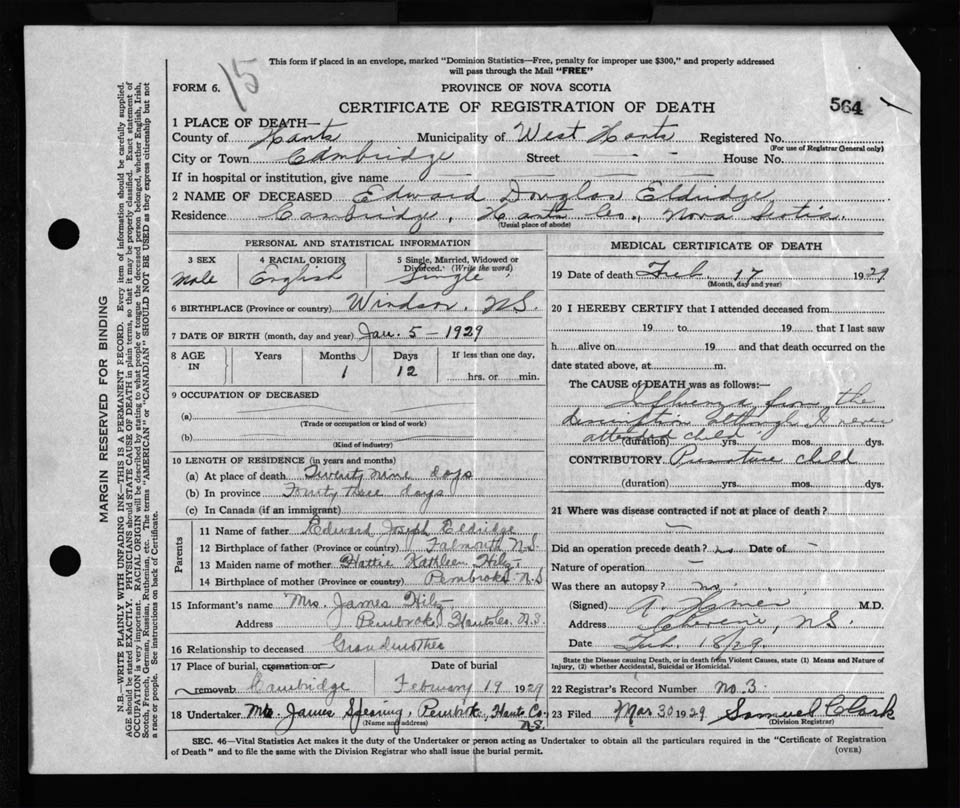 This form if placed in an envelope, marked "Dominion Statistics—Free, penalty for improper use $300," and properly addressed
will pass through the Mail "FREE"
FORM 6.
15
PROVINCE OF NOVA SCOTIA
CERTIFICATE OF REGISTRATION OF DEATH
564
1 PLACE OF DEATH—
County of Hants Municipality of West Hants Registered No.
(For use of Registrar General only)
City or Town Cambridge Street — — House No.
If in hospital or institution, give name
2 NAME OF DECEASED Edward Douglas Eldridge
Residence Cambridge, Hants Co., Nova Scotia.
(Usual place of abode)
PERSONAL AND STATISTICAL INFORMATION
3 SEX Male
4 RACIAL ORIGIN English
5 Single, Married, Widowed or Divorced. (Write the word) Single
6 BIRTHPLACE (Province or country) Windsor, N.S.
7 DATE OF BIRTH (month, day and year) Jan. 5 – 1929
8 AGE IN Years Months 1 Days 12 If less than one day, hrs. or min.
9 OCCUPATION OF DECEASED
(a)
(Trade or occupation or kind of work)
(b)
(Kind of industry)
10 LENGTH OF RESIDENCE (in years and months)
(a) At place of death Twenty nine days
(b) In province Fourty three days
(c) In Canada (if an immigrant)
Parents
11 Name of father Edward Joseph Eldridge
12 Birthplace of father (Province or country) Falmouth N.S.
13 Maiden name of mother Hattie Kathleen Hilz
14 Birthplace of mother (Province or country) Pembroke N.S
15 Informant's name Mrs. James Hilz
Address Pembroke, Hants Co. N.S.
16 Relationship to deceased Grandmother
17 Place of burial, cremation or removal Cambridge
Date of burial February 19 1929
18 Undertaker Mrs. James Spearing, Pembroke, Hants Co. N.S.
(Name and address)
MEDICAL CERTIFICATE OF DEATH
19 Date of death Feb. 17 1929
(Month, day and year)
20 I HEREBY CERTIFY that I attended deceased from
19 to 19 that I last saw
h alive on 19 and that death occurred on the
date stated above, at m.
The CAUSE of DEATH was as follows:—
Influenza from the
description although I never
attended child
(duration) yrs. mos. dys.
CONTRIBUTORY Premature child
(duration) yrs. mos. dys.
21 Where was disease contracted if not at place of death?
—
Did an operation precede death? no Date of –
Nature of operation –
Was there an autopsy? no
(Signed) A. M.D.
Address N.S.
Date Feb. 18/29
State the Disease causing Death, or in death from Violent Causes, state (1) Means and Nature of
Injury, (2) whether Accidental, Suicidal or Homicidal.
22 Registrar's Record Number no. 3
23 Filed Mar 30 1929 Samuel Clark
(Division Registrar)
SEC. 46—Vital Statistics Act makes it the duty of the Undertaker or person acting as Undertaker to obtain all the particulars required in the "Certificate of Registration
of Death" and to file the same with the Division Registrar who shall issue the burial permit.
(OVER)
MARGIN RESERVED FOR BINDING
N.B.—WRITE PLAINLY WITH UNFADING INK—THIS IS A PERMANENT RECORD. Every item of information should be carefully supplied.
AGE should be stated EXACTLY. PHYSICIANS should STATE CAUSE OF DEATH in plain terms, so that it may be properly classified. Exact statement of
OCCUPATION is very important. RACIAL ORIGIN will be described by stating to what people or tongue the deceased person belonged, whether English, Irish,
Scotch, French, German, Russian, Ruthenian, etc. The terms "AMERICAN" or "CANADIAN" SHOULD NOT BE USED as they express citizenship but not
a race or people. See instructions on back of Certificate.